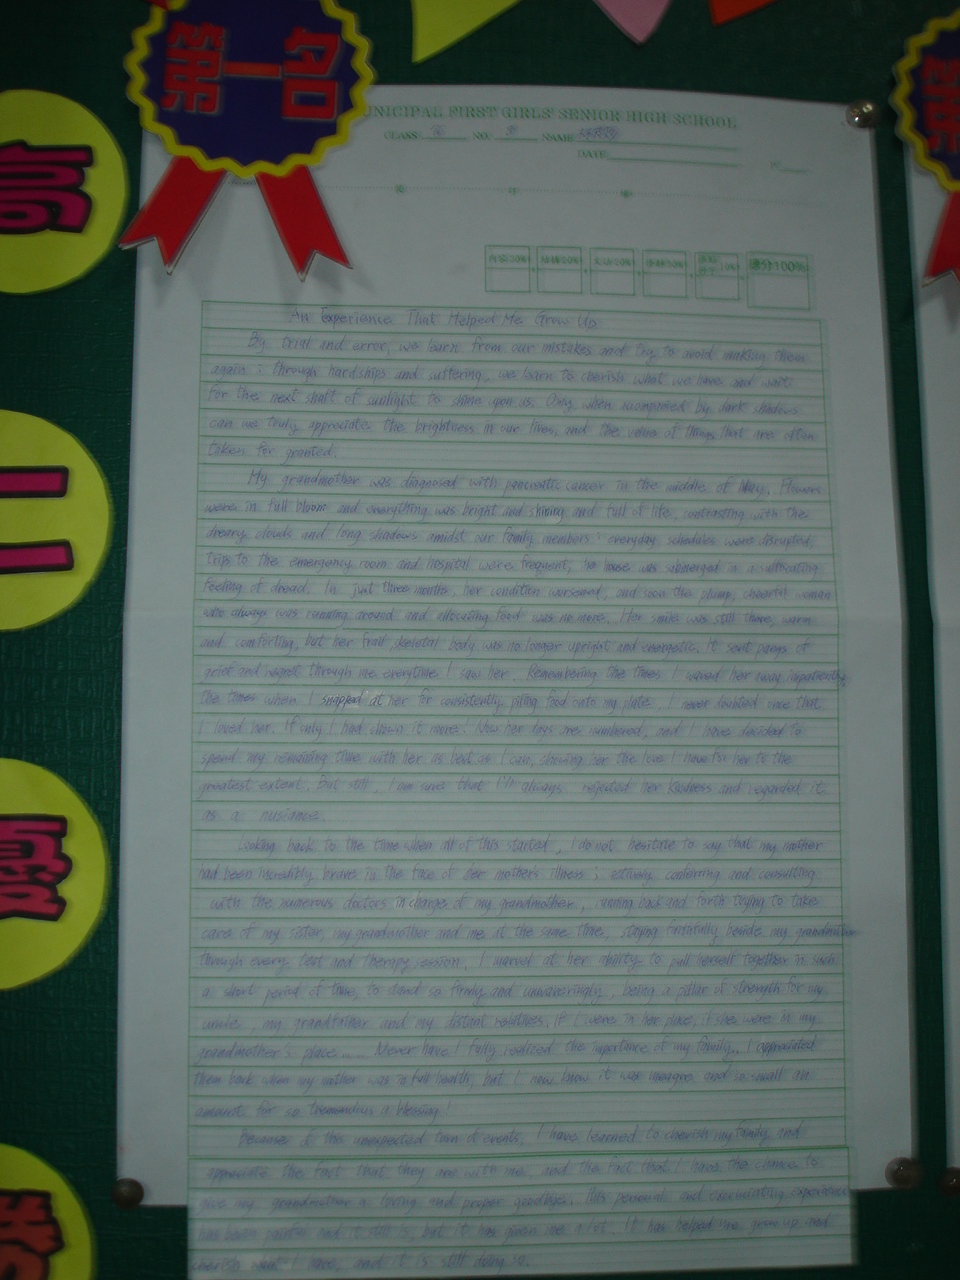 第一名
MUNICIPAL FIRST GIRLS' SENIOR HIGH SCHOOL
CLASS NO. NAME
DATE:
總分100%
An Experience That Helped Me Grow Up
By trial and error, we learn from our mistakes and try to avoid making them
again; through hardships and suffering, we learn to cherish what we have and wait
for the next shaft of sunlight to shine upon us. Only when accompanied by dark shadows
can we truly appreciate the brightness in our lives, and the value of things that are often
taken for granted.
My grandmother was diagnosed with pancreatic cancer in the middle of May. Flowers
were in full bloom and everything was bright and shining and full of life, contrasting with the
dreary clouds and long shadows amidst our family members; everyday schedules were disrupted,
trips to the emergency room and hospital were frequent, the house was submerged in a suffocating
feeling of dread. In just three months, her condition worsened, and soon the plump, cheerful woman
who always was running around and allocating food was no more. Her smile was still there, warm
and comforting, but her frail, skeletal body was no longer upright and energetic. It sent pangs of
grief and regret through me everytime I saw her. Remembering the times I waved her away impatiently,
the times when I snapped at her for consistently piling food onto my plate, I never doubted once that
I loved her. If only I had shown it more. Now her days are numbered, and I have decided to
spend my remaining time with her as best as I can, showing her the love I have for her to the
greatest extent. But still, I am sure that I'll always rejected her kindness and regarded it
as a nusiance.
Looking back to the time when all of this started, I do not hesitate to say that my mother
had been incredibly brave in the face of her mother's illness; actively conferring and consulting
with the numerous doctors in charges of my grandmother, running back and forth trying to take
care of my sister, my grandmother and me at the same time, staying faithfully beside my grandmother
through every test and therapy session. I marvel at her ability to pull herself together in such
a short period of time, to stand so firmly and unwaveringly, being a pillar of strength for my
uncle, my grandfather and my distant relatives. If I were in her place, if she were in my
grandmother's place...... Never have I fully realized the importance of my family. I appreciated
them back when my mother was in full health, but I now know it was meager and so small an
amount for so tremendous a blessing!
Because of this unexpected turn of events, I have learned to cherish my family and
appreciate the fact that they are with me, and the fact that I have the chance to
give my grandmother a loving and proper goodbye. This personal and excruciating experience
has been painful and it still is, but it has given me a lot. It has helped me grow up and
cherish what I have, and it is still doing so.